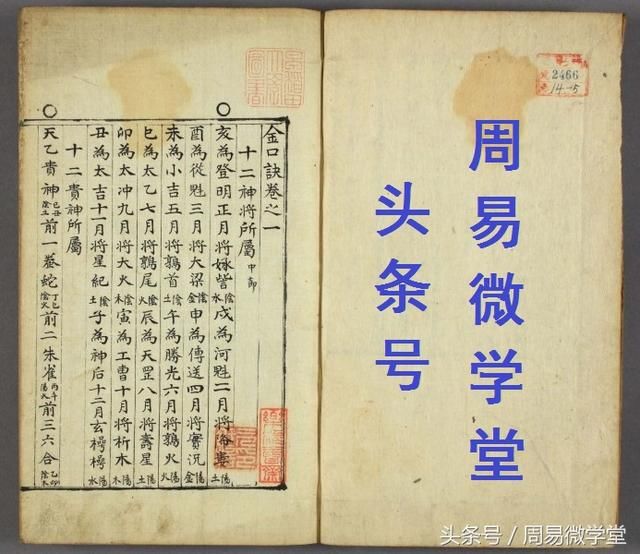 金口訣卷之一
十二神將所屬中部
亥為登明正月將娵訾陰水戌為河魁二月將降婁陽土
酉為從魁三月將大梁陰金申為傳送四月將實況陽金
未為小吉五月將鶉首陰土午為勝光六月將鶉火陽火
巳為太乙七月將鶉尾陰火辰為天罡八月將壽星陽土
卯為太冲九月將大火陰木寅為工曹十月將析木陽木
丑為太吉十一月將星紀陰土子為神后十二月玄枵陽水
十二貴神所屬
天乙貴神己丑陰土前一螣蛇丁巳陰火前二朱雀丙午陽火前三六合乙卯陰木
2466
14-15
周易微学堂
头条号
头条号 / 周易微学堂